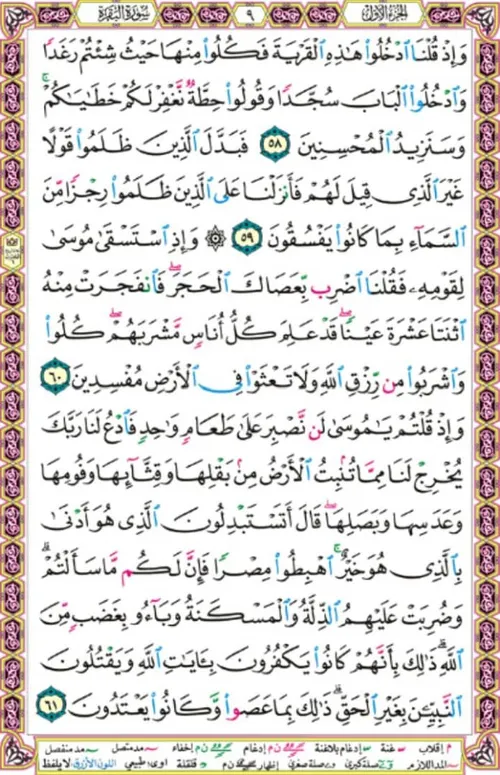 الجزء الأول ٩ سورة البقرة
وَإِذْ قُلْنَا ٱدْخُلُوا۟ هَٰذِهِ ٱلْقَرْيَةَ فَكُلُوا۟ مِنْهَا حَيْثُ شِئْتُمْ رَغَدًا
وَٱدْخُلُوا۟ ٱلْبَابَ سُجَّدًا وَقُولُوا۟ حِطَّةٌ نَّغْفِرْ لَكُمْ خَطَٰيَٰكُمْ ۚ
وَسَنَزِيدُ ٱلْمُحْسِنِينَ ٥٨ فَبَدَّلَ ٱلَّذِينَ ظَلَمُوا۟ قَوْلًا
غَيْرَ ٱلَّذِى قِيلَ لَهُمْ فَأَنزَلْنَا عَلَى ٱلَّذِينَ ظَلَمُوا۟ رِجْزًا مِّنَ
ٱلسَّمَآءِ بِمَا كَانُوا۟ يَفْسُقُونَ ٥٩ ۞ وَإِذِ ٱسْتَسْقَىٰ مُوسَىٰ
لِقَوْمِهِۦ فَقُلْنَا ٱضْرِب بِّعَصَاكَ ٱلْحَجَرَ ۖ فَٱنفَجَرَتْ مِنْهُ
ٱثْنَتَا عَشْرَةَ عَيْنًا ۖ قَدْ عَلِمَ كُلُّ أُنَاسٍ مَّشْرَبَهُمْ ۖ كُلُوا۟
وَٱشْرَبُوا۟ مِن رِّزْقِ ٱللَّهِ وَلَا تَعْثَوْا۟ فِى ٱلْأَرْضِ مُفْسِدِينَ ٦٠
وَإِذْ قُلْتُمْ يَٰمُوسَىٰ لَن نَّصْبِرَ عَلَىٰ طَعَامٍ وَٰحِدٍ فَٱدْعُ لَنَا رَبَّكَ
يُخْرِجْ لَنَا مِمَّا تُنۢبِتُ ٱلْأَرْضُ مِنۢ بَقْلِهَا وَقِثَّآئِهَا وَفُومِهَا
وَعَدَسِهَا وَبَصَلِهَا ۖ قَالَ أَتَسْتَبْدِلُونَ ٱلَّذِى هُوَ أَدْنَىٰ
بِٱلَّذِى هُوَ خَيْرٌ ۚ ٱهْبِطُوا۟ مِصْرًا فَإِنَّ لَكُم مَّا سَأَلْتُمْ ۗ
وَضُرِبَتْ عَلَيْهِمُ ٱلذِّلَّةُ وَٱلْمَسْكَنَةُ وَبَآءُو بِغَضَبٍ مِّنَ
ٱللَّهِ ۗ ذَٰلِكَ بِأَنَّهُمْ كَانُوا۟ يَكْفُرُونَ بِـَٔايَٰتِ ٱللَّهِ وَيَقْتُلُونَ
ٱلنَّبِيِّـۧنَ بِغَيْرِ ٱلْحَقِّ ۗ ذَٰلِكَ بِمَا عَصَوا۟ وَّكَانُوا۟ يَعْتَدُونَ ٦١